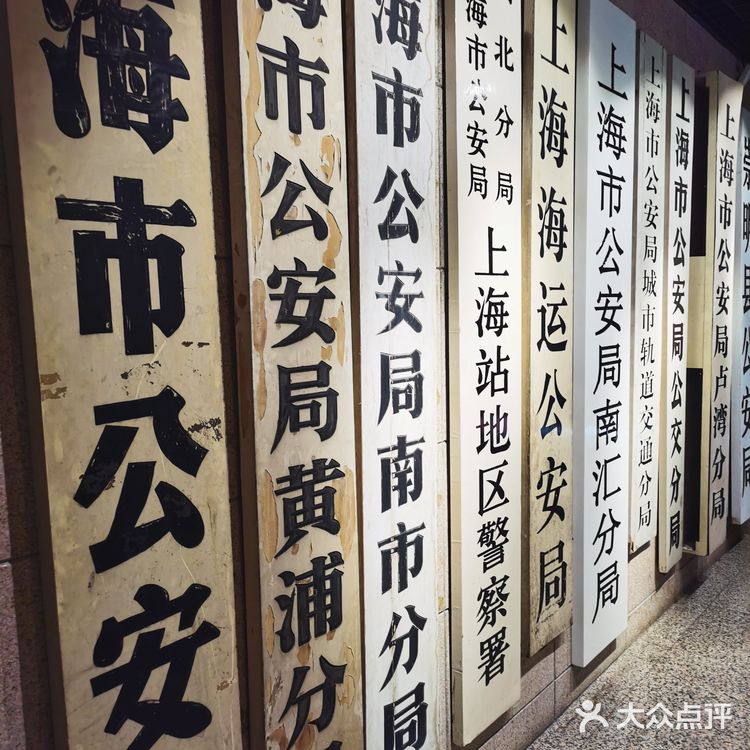 海市公安
海市公安局黄浦分
海市公安局南市分局
海市公安局
北分局
上海站地区警察署
上海海运公安局
上海市公安局南汇分局
上海市公安局城市轨道交通分局
上海市公安局公交分局
上海市公安局卢湾分局
崇明县公安局
大众点评